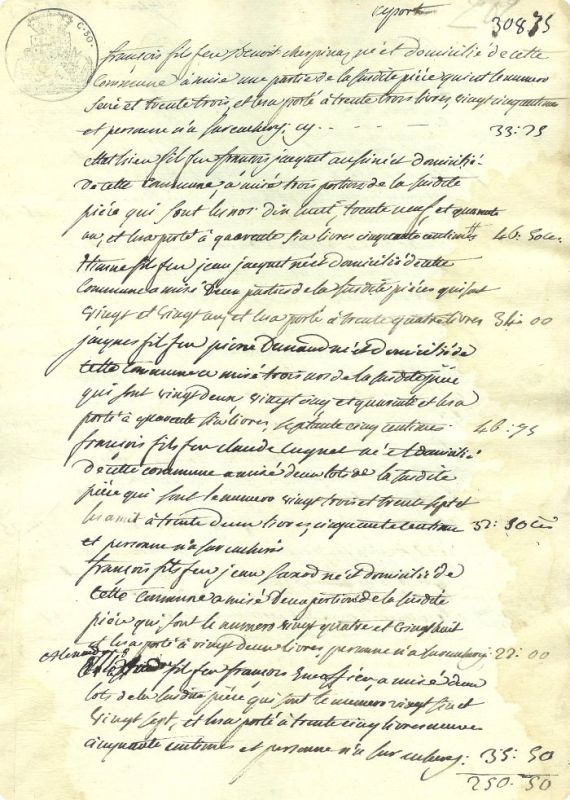 report 308 75
françois fils feu Benoit né et domicilié de cette
Commune a misé une partie de la susdite pièce qui est le numero
trente trois, et les a porté à trente trois livres, vingt cinq centimes
et personne n'a surencheri, cy - - - 33:25
fils feu françois jacquet aussi né et domicilié
de cette commune, a misé trois portions de la susdite
pièce qui sont les nos dix huit, trente neuf, et quarante
un, et les a porté à quarante six livres cinquante centimes 46:50 ce.
fils feu jean jacquet né et domicilié de cette
Commune a misé Deux parties de la susdite pièces qui sont
vingt et vingt un, et les a porté à trente quatre livres 34:00
jacques fils feu pierre né et domicilié de
cette commune a misé trois nos de la susdite pièce
qui sont vingt deux vingt cinq et quarante et les a
porté à quarante six livres septante cinq centimes 46:75
françois fils feu claude né et domicilié
de cette commune a misé deux lots de la susdite
pièce qui sont le numero vingt trois et trente sept et
les a mit à trente deux livres, cinquante centime 32:50 ces
et personne n'a surencheri
françois fils feu jean né et domicilié de
cette commune a misé Deux portions de la susdite
pièce qui sont le numero vingt quatre et vingt huit
et les a porté à vingt deux livres personne n'a surencheri: 22:00
fils feu françois a misé deux
lots de la susdite pièce qui sont le numéro vingt six et
vingt sept, et les a porté à trente cinq livres neuves
cinquante centimes et personne n'a surencheri: 35:50
250.50